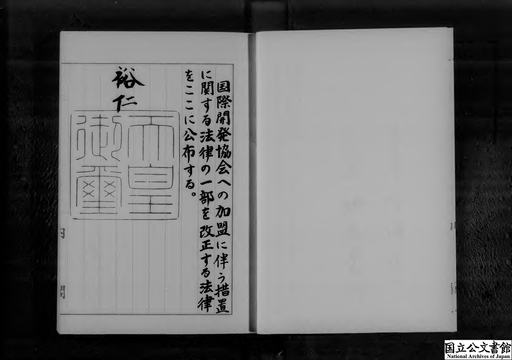 国際開発協会への加盟に伴う措置
に関する法律の一部を改正する法律
をここに公布する。
裕仁
天皇
御璽
国立公文書館
National Archives of Japan